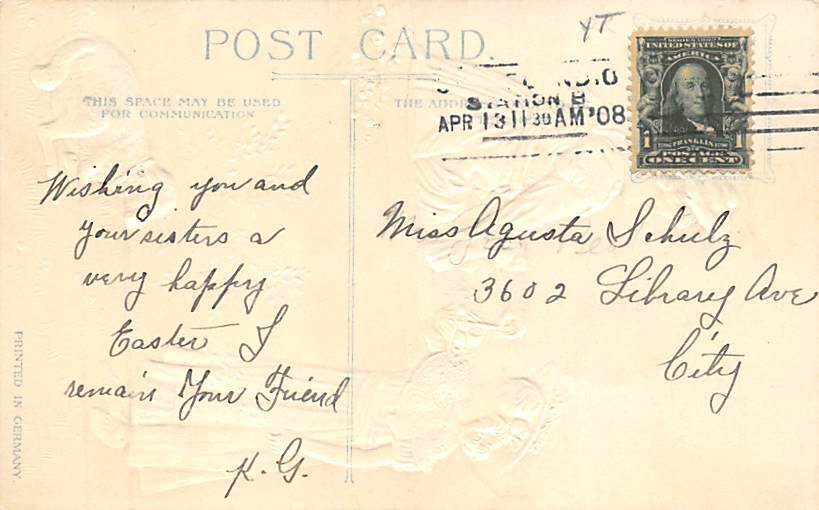 YT
POST CARD.
THIS SPACE MAY BE USED
FOR COMMUNICATION
THE
STATION B
APR 13 11 30 AM '08
UNITED STATES OF
AMERICA
1 FRANKLIN 1
POSTAGE
ONE CENT
Wishing you and
your sisters a
very happy
Easter I
remain Your Friend
K. G.
Miss Agusta Schulz
3602 Library Ave
City
PRINTED IN GERMANY